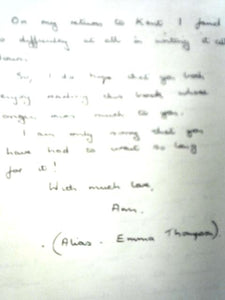 On my return to Kent I found
no difficulty at all in writing it all
down.
So, I do hope that you both
enjoy reading this book whose
origin was much to you.
I am only sorry that you
have had to wait so long
for it!
With much love,
Ann.
(Alias - Emma Thompson)